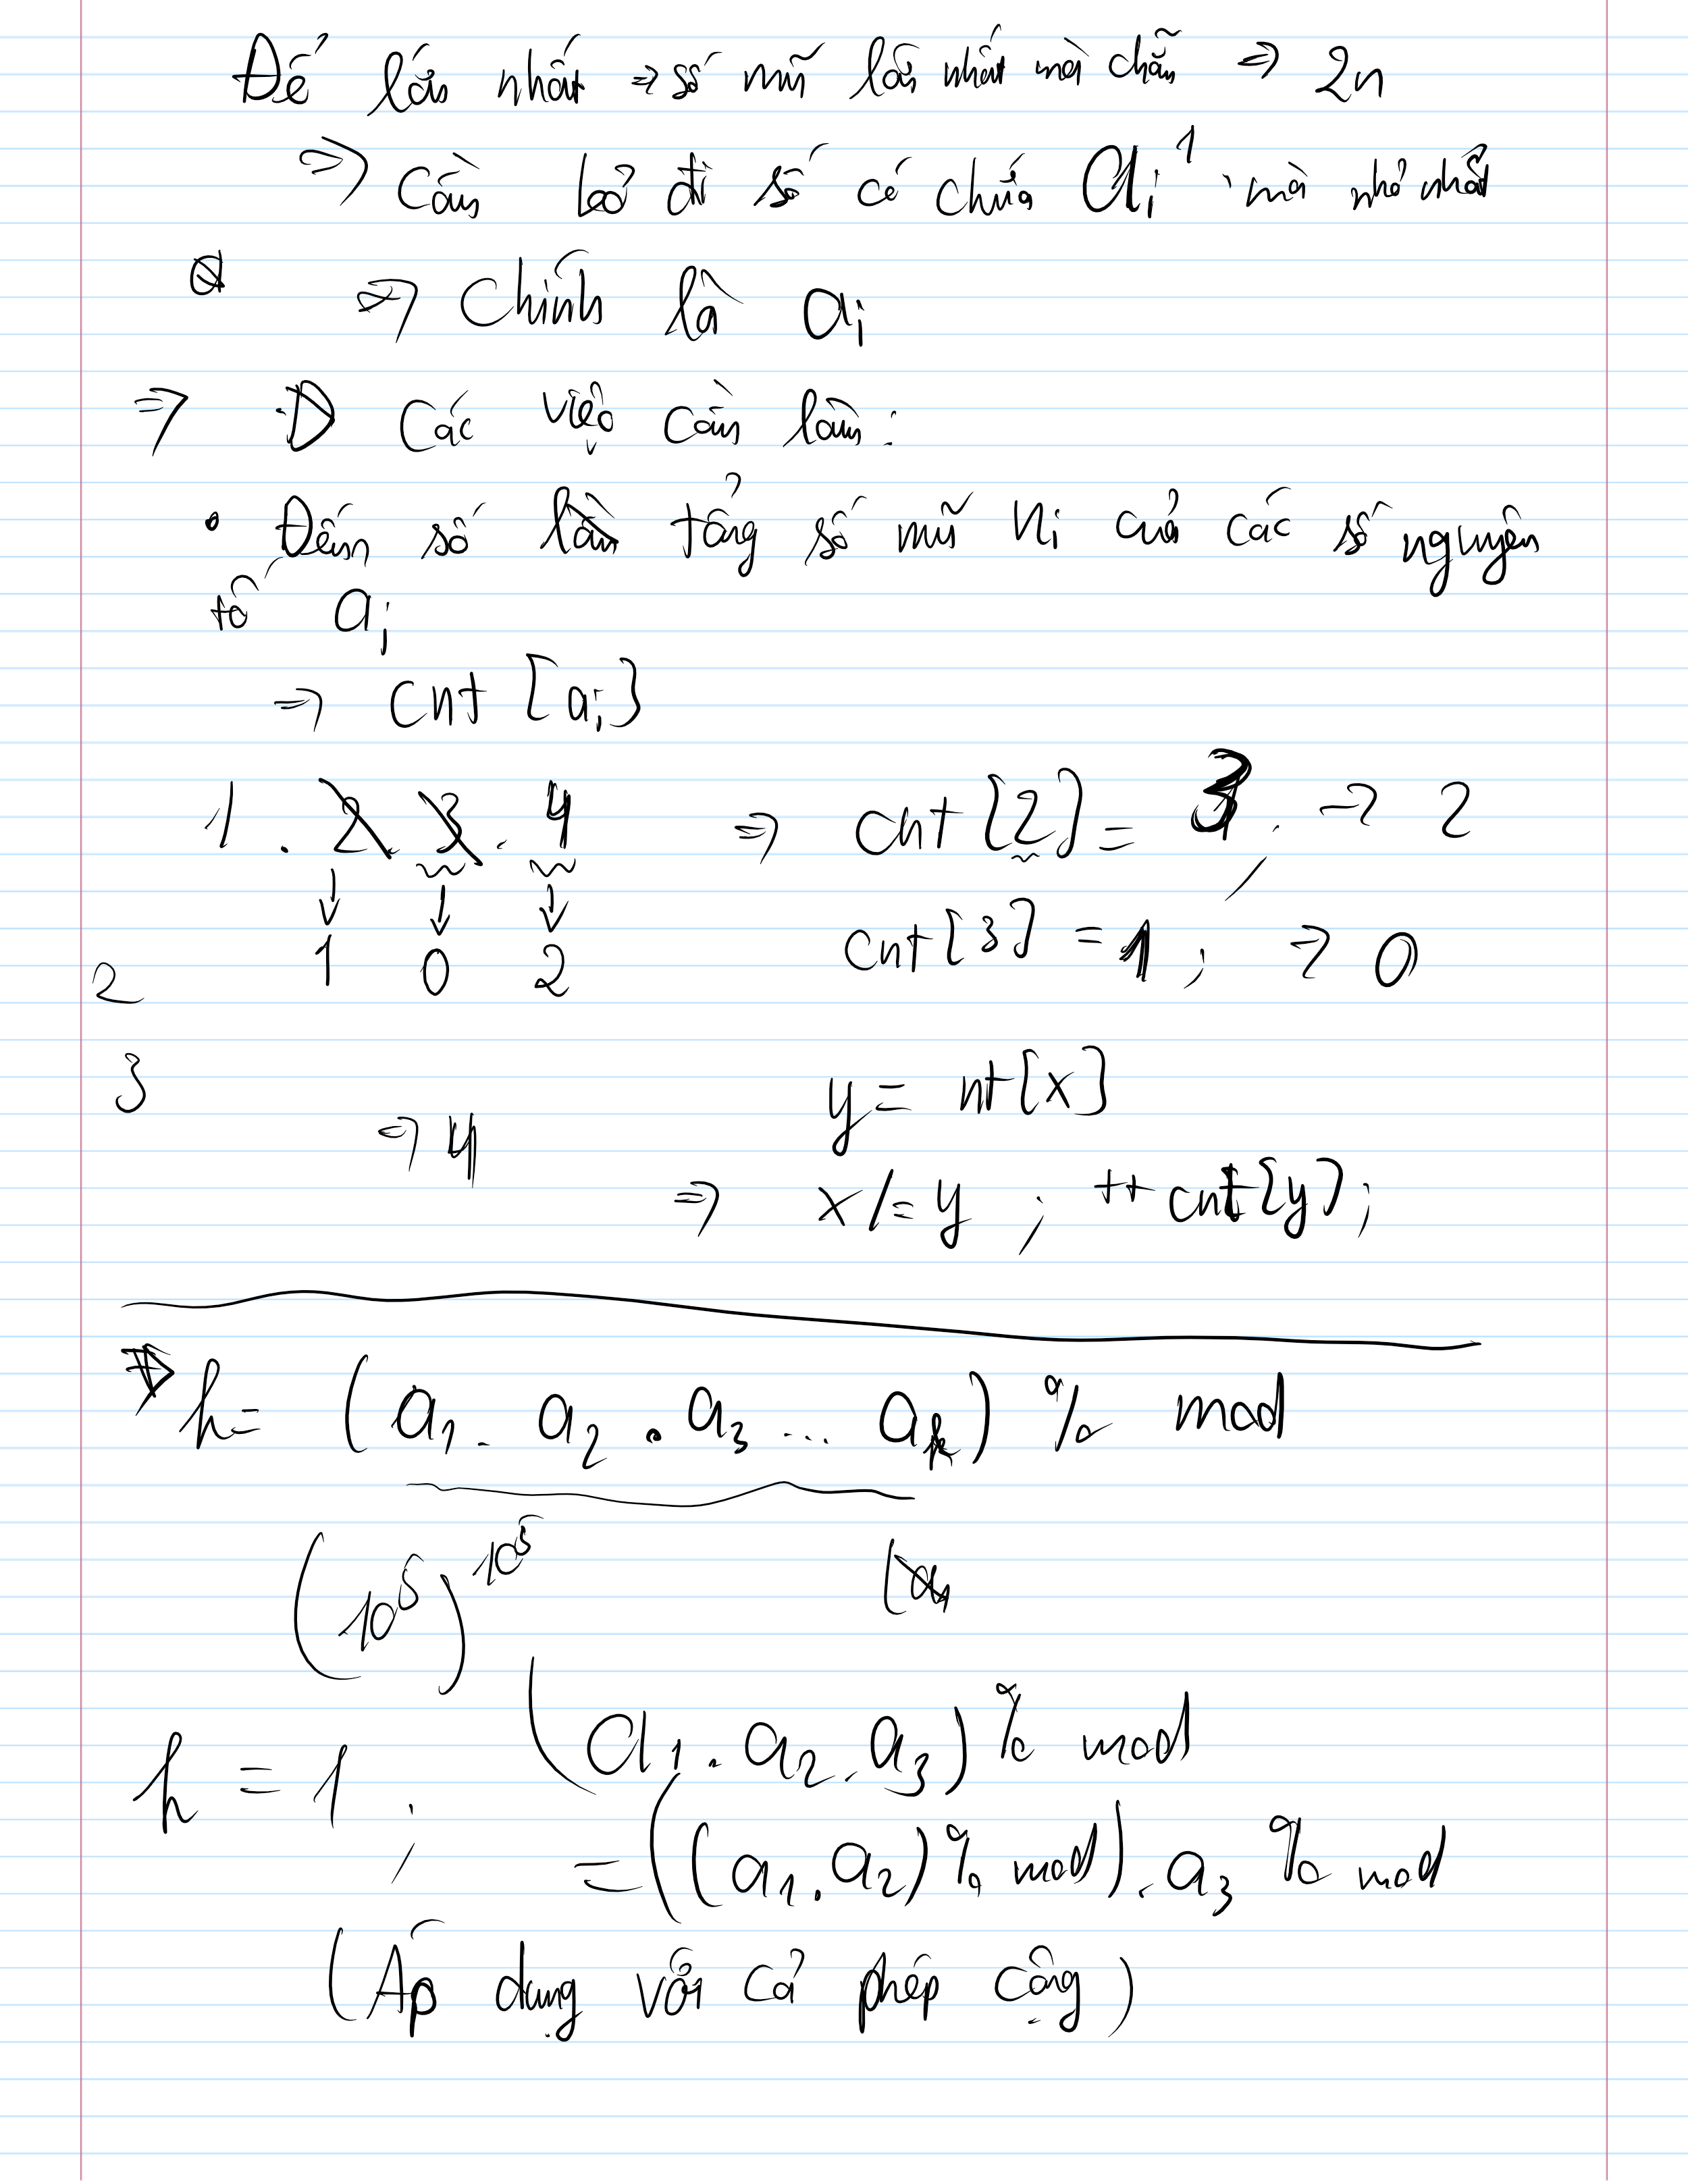 Để lớn nhất => số mũ lớn nhất mà chẵn => 2n
=> Cần loại đi số có chứa aᵢ¹ mà nhỏ nhất
=> Chính là aᵢ
=> Các việc cần làm:
• Đếm số lần tổng số mũ nᵢ của các số nguyên
tố aᵢ
=> cnt [aᵢ]
1 . 2 . 3 . 4 => cnt [2] = 3, -> 2
↓ ↓ ↓
2 1 0 2 cnt [3] = 1 ; -> 0
3 y = nt[x]
=> 4
=> x /= y ; ++cnt[y];
h = (a₁ . a₂ . a₃ ... aₖ) % mod
(10⁵)^10⁵ (a₁
h = 1 ; (a₁ . a₂ . a₃) % mod
= ((a₁ . a₂) % mod) . a₃ % mod
(Áp dụng với cả phép cộng)